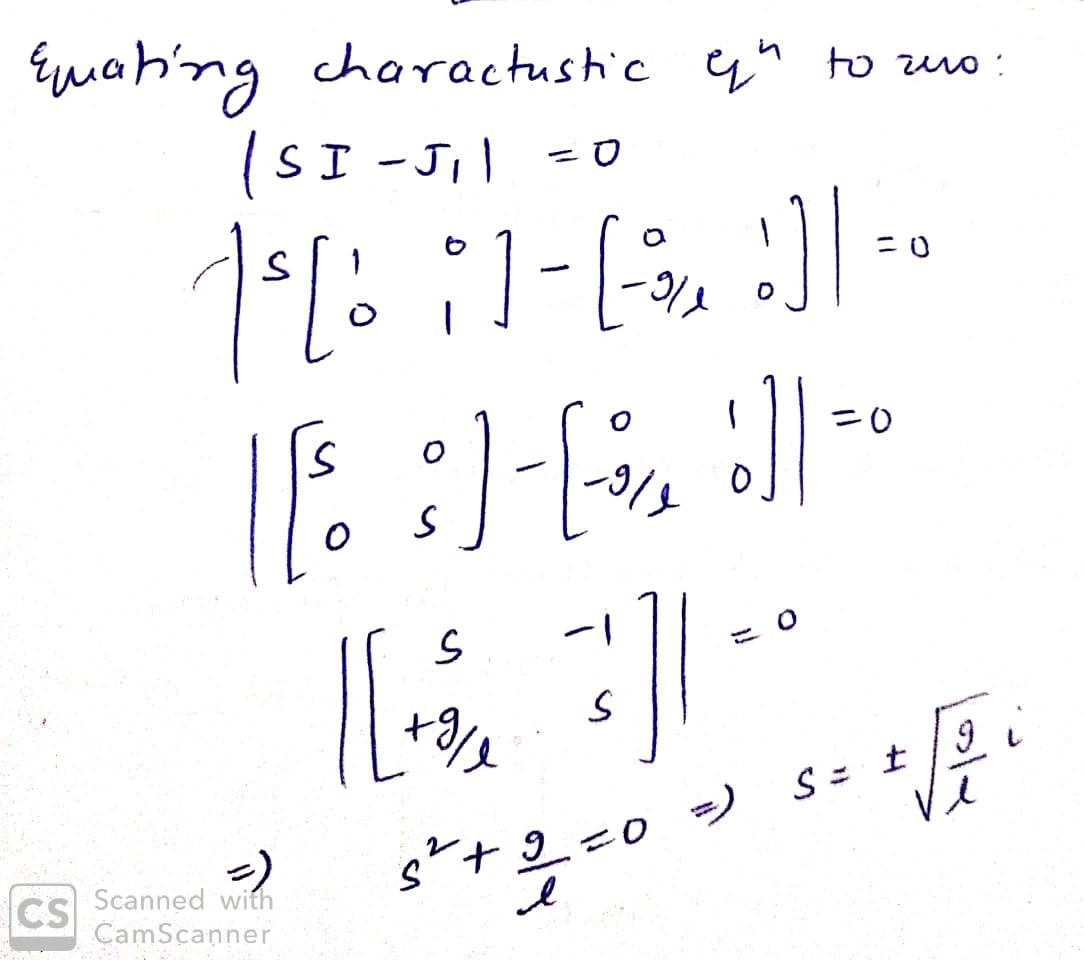 Equating charactustic eqn to zero:
|SI - J₁| = 0
|s[1 0; 0 1] - [0 1; -g/l 0]| = 0
|[s 0; 0 s] - [0 1; -g/l 0]| = 0
|[s -1; +g/l s]| = 0
=) s² + g/l = 0 =) s = ± √(g/l) i
CS Scanned with
CamScanner